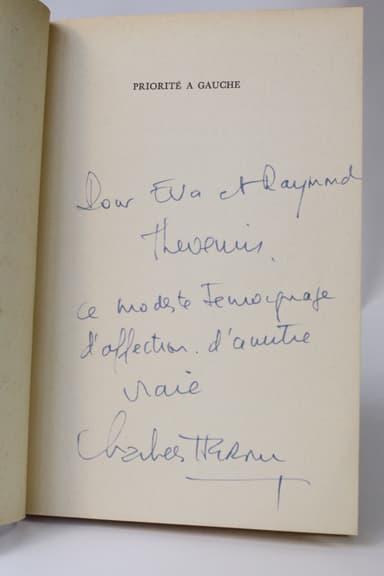 PRIORITÉ A GAUCHE
Pour Eva et Raymond
Thevenin,
ce modeste temoignage
d'affection. d'amitié
vraie
Charles Hernu